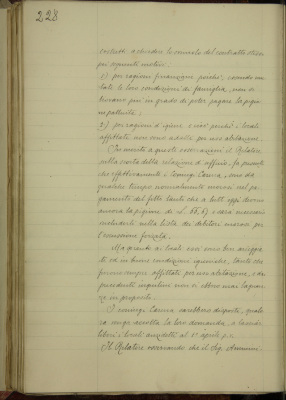 228
costretti a chiedere lo svincolo del contratto stesso
pei seguenti motivi:
1) per ragioni finanziarie perchè, essendo mu
tate le loro condizioni di famiglia, non si
trovano più in grado di poter pagare la pigione
pattuita;
2) per ragioni d'igiene e cioè perchè i locali
affittati non sono adatti per uso abitazione.
In merito a queste osservazioni il Relatore
nella scorta della relazione d'ufficio, fa presente
che effettivamente i Coniugi Carina, sono da
qualche tempo normalmente morosi nel pa
gamento del fitto tanto che a tutt'oggi devono
ancora la pigione di L. e sarà necessario
includerli nella lista dei debitori morosi per
l'esazione forzata.
Ma quando ai locali essi sono ben arieggia
ti ed in buone condizioni igieniche, tanto che
furono sempre affittati per uso abitazione, e dai
precedenti inquilini non si ebbero mai lagnan
ze in proposito.
I coniugi Carina sarebbero disposti, qualo
ra venga accolta la loro domanda, a lasciare
liberi i locali anzidetti al 1° aprile p.v.
Il Relatore osservando che il Sig.